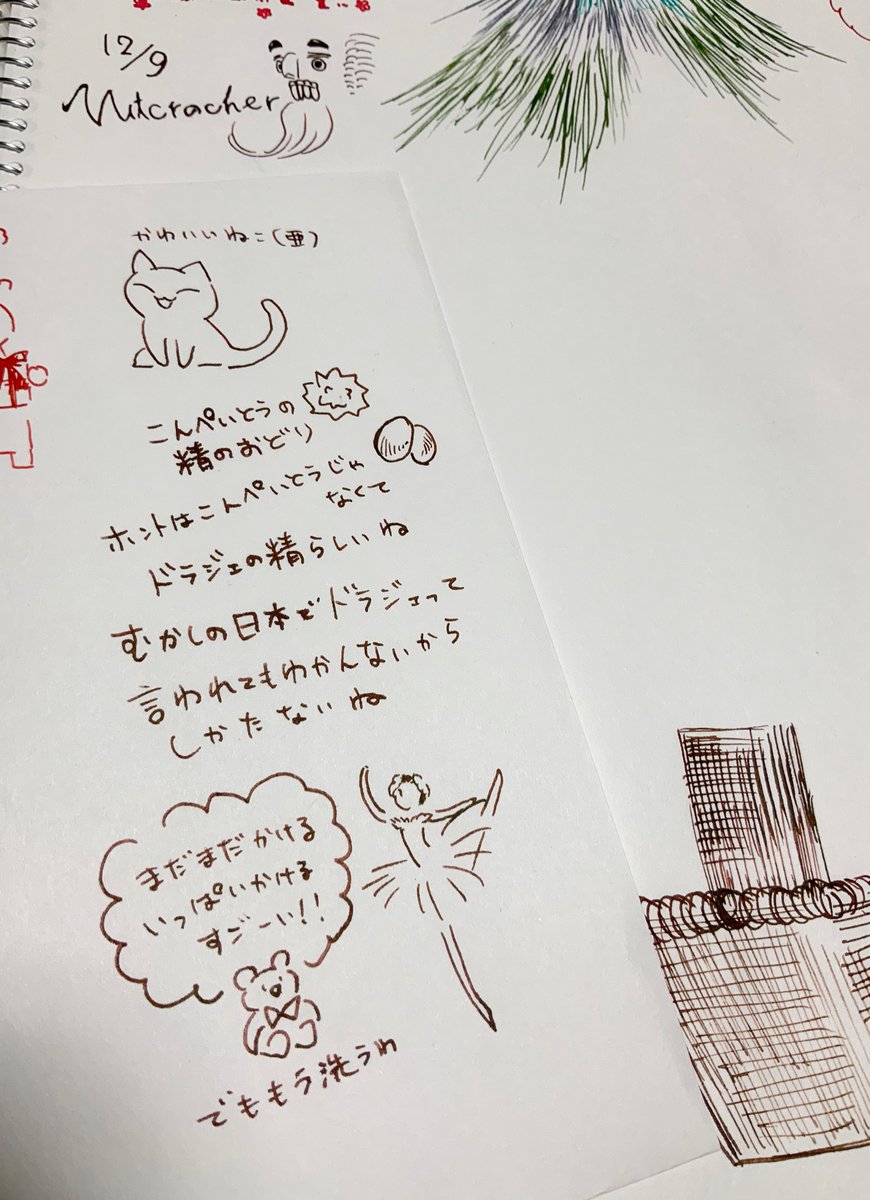 12/9
Nutcracher
かわいいねこ(亜)
こんぺいとうの
精のおどり
ホントはこんぺいとうじゃ
なくて
ドラジェの精らしいね
むかしの日本でドラジェって
言われてもわかんないから
しかたないね
まだまだかける
いっぱいかける
すごーい!!
でももう洗うわ